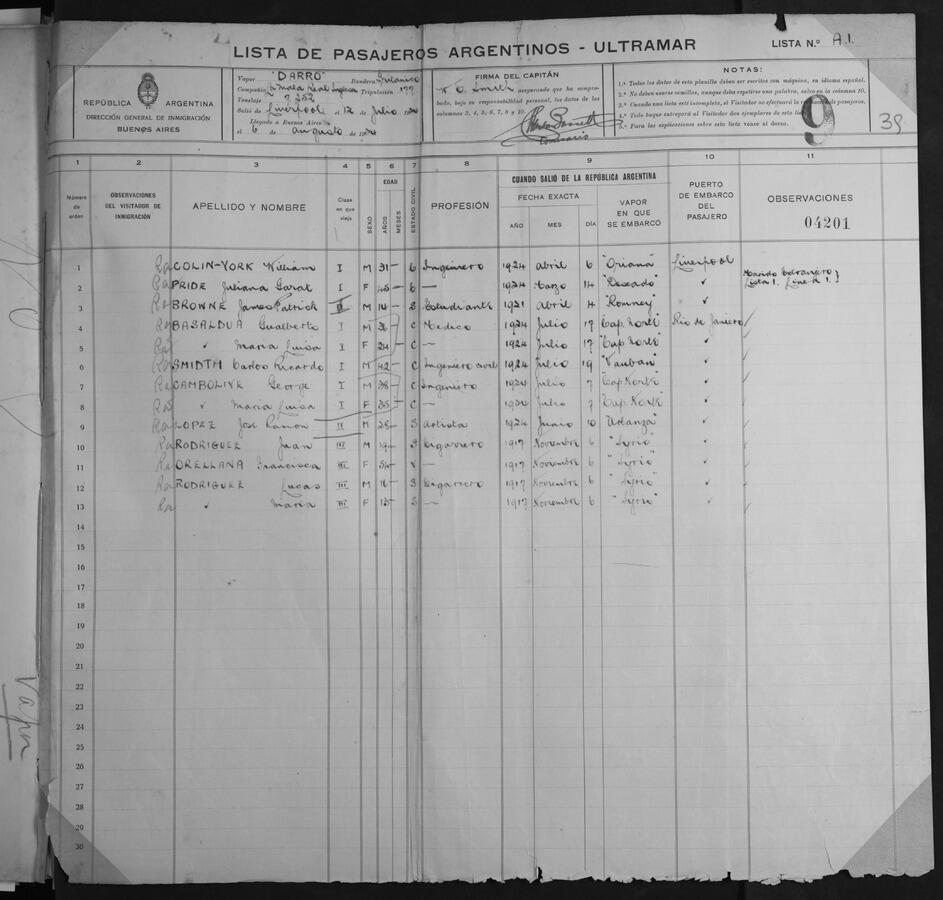 LISTA DE PASAJEROS ARGENTINOS - ULTRAMAR
LISTA N.º A.1.
REPÚBLICA ARGENTINA
DIRECCIÓN GENERAL DE INMIGRACIÓN
BUENOS AIRES
Vapor "DARRO" Bandera
Compañía Mala Real Inglesa Tripulación 177
Tonelaje 7252
Salió de Liverpool el 12 de Julio
Llegado a Buenos Aires
el 6 de augusto de 1924
FIRMA DEL CAPITÁN
W O. Smith asegurando que ha comprobado, bajo su responsabilidad personal, los datos de las columnas 3, 4, 5, 6, 7, 8, 9 y 10.
Comisario
NOTAS:
1.ª Todos los datos de esta planilla deben ser escritos con máquina, en idioma español.
2.ª No deben usarse comillas, aunque deba repetirse una palabra, salvo en la columna 10.
3.ª Cuando una lista esté incompleta, el Visitador no efectuará la de pasajeros.
4.ª Todo buque entregará al Visitador dos ejemplares de esta
5.ª Para las explicaciones sobre esta lista véase al dorso.
9
39
1 2 3 4 5 6 7 8 9 10 11
Número de orden
OBSERVACIONES DEL VISITADOR DE INMIGRACIÓN
APELLIDO Y NOMBRE
Clase en que viaja
SEXO
EDAD
AÑOS
MESES
ESTADO CIVIL
PROFESIÓN
CUANDO SALIÓ DE LA REPÚBLICA ARGENTINA
FECHA EXACTA
AÑO MES DÍA
VAPOR EN QUE SE EMBARCÓ
PUERTO DE EMBARCO DEL PASAJERO
OBSERVACIONES
04201
1 COLIN-YORK William I M 31 - C Ingeniero 1924 Abril 6 "Oriana" Liverpool
2 PRIDE Juliana Sarat I F 45 - C — 1924 Marzo 14 "Deseado" ✓ Marido extranjero, Lista 1. Linea 1.
3 BROWNE James Patrick II M 14 - S Estudiante 1921 Abril 4 "Romney" ✓
4 BASALDUA Gualberto I M C Medico 1924 Julio 17 "Cap. Norte" Rio de Janiero
5 " Maria Luisa I F 24 - C — 1924 Julio 17 "Cap Norte" ✓
6 SMIDTH Carlos Ricardo I M 42 - C Ingeniero civil 1924 Julio 19 "Vauban" ✓
7 CAMBOLIVE George I M 38 - C Ingeniero 1924 Julio 7 "Cap Norte" ✓
8 " Maria Luisa I F 35 - C — 1924 Julio 7 "Cap. Norte" ✓
9 LOPEZ José Ramon II M 28 - S Artista 1924 Junio 10 "Arlanza" ✓
10 RODRIGUEZ Juan III M 19 - S Cigarrero 1917 Novembre 6 "Syrio" ✓
11 ORELLANA Francisca III F 54 - V — 1917 Novembre 6 "Syrio" ✓
12 RODRIGUEZ Lucas III M 16 - S Cigarrero 1917 Noviembre 6 "Syrio" ✓
13 " Maria III F 15 - S — 1917 Noviembre 6 "Syrio" ✓
14
15
16
17
18
19
20
21
22
23
24
25
26
27
28
29
30
Vapor